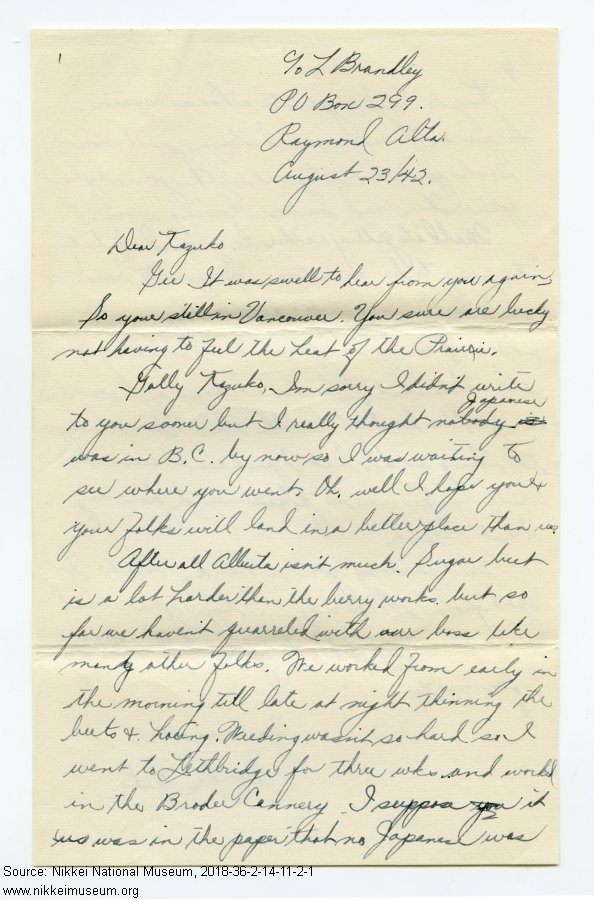 1
c/o L Brandley
PO Box 299.
Raymond Alta.
August 23/42.
Dear Kazuko
Gee It was swell to hear from you again,
So your still in Vancouver. You sure are lucky
not having to feel the heat of the Prairie.
Golly Kazuko, I'm sorry I didn't write
to you sooner but I really thought nobody is Japanese
was in B.C. by now so I was waiting to
see where you went. Oh, well I hope you &
your folks will land in a better place than us.
After all Alberta isn't much. Sugar beet
is a lot harder than the berry works. but so
far we haven't quarreled with our boss like
many other folks. We worked from early in
the morning till late at night thinning the
beets & hoeing. Weeding wasn't so hard so I
went to Lethbridge for three wks. and worked
in the Broder Cannery. I suppose you it
was in the paper that no Japanese was
Source: Nikkei National Museum, 2018-36-2-14-11-2-1
www.nikkeimuseum.org